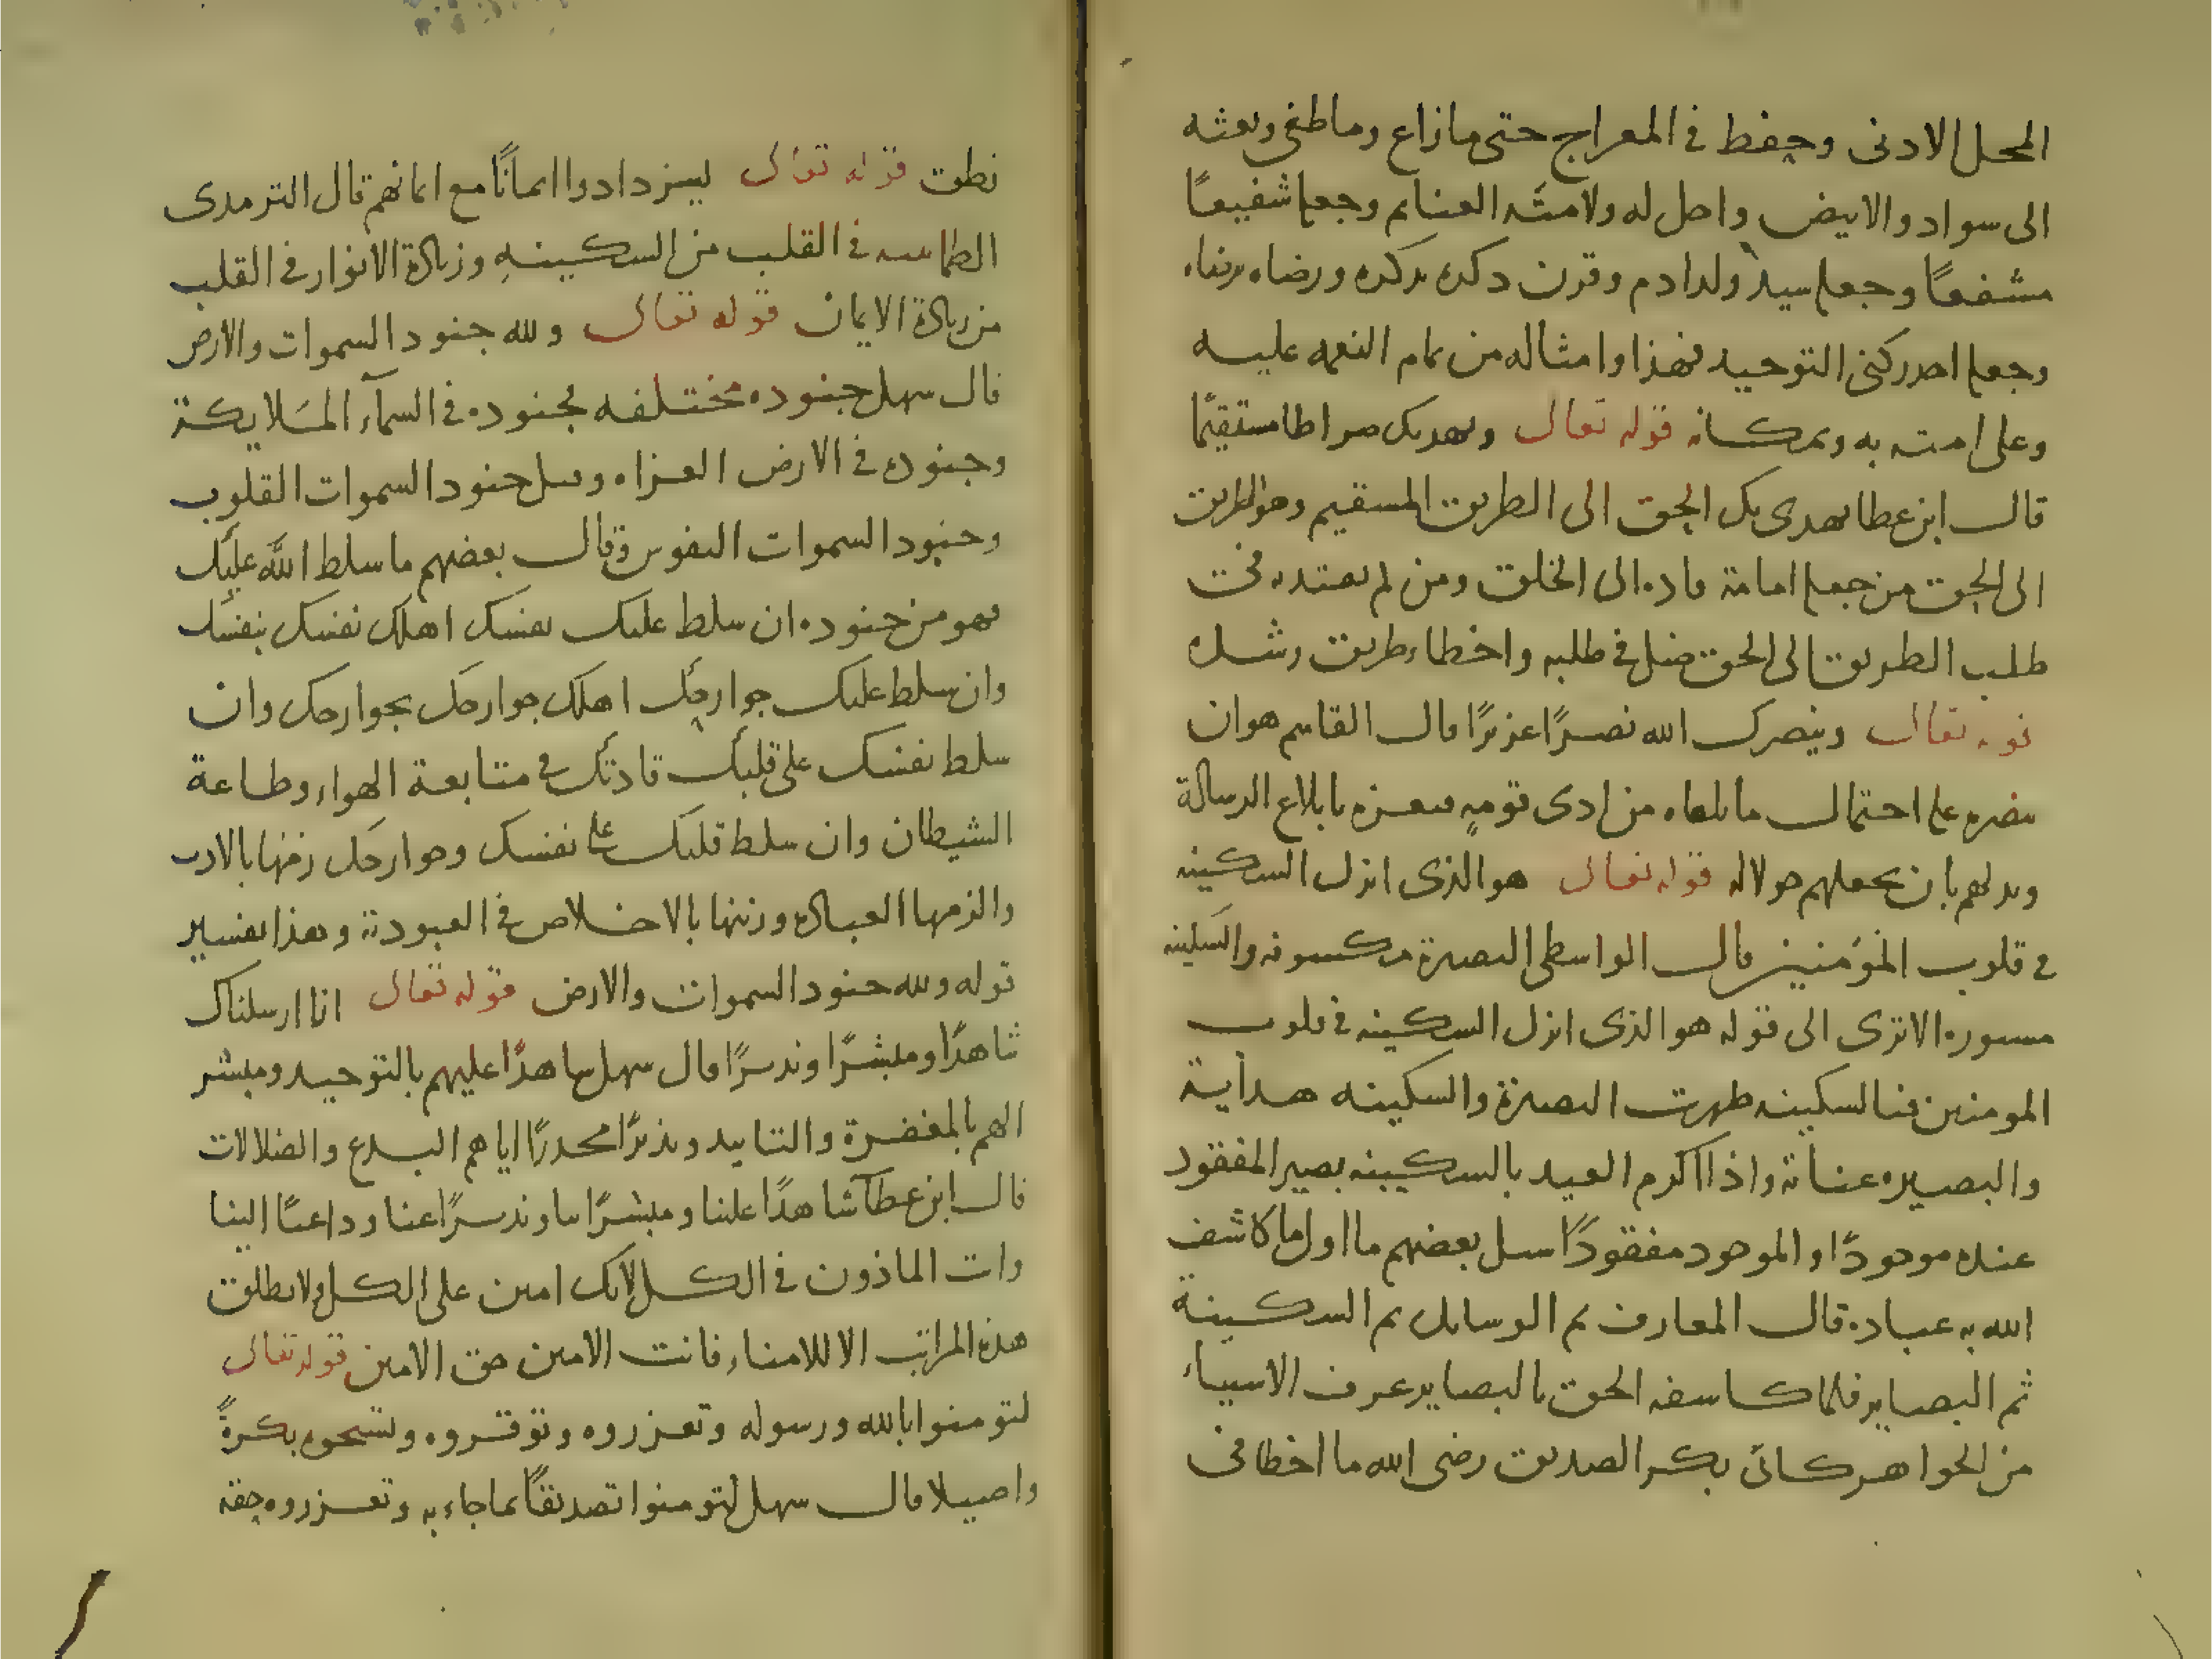 المحل الادنى وحفظ في المعراج حتى ما زاغ وما طغى وبعثه
الى سواد والابيض واحل له ولامته الغنايم وجعله شفيعًا
مشفعًا وجعله سيد ولد ادم وقرن ذكره بذكره ورضاه برضاه
وجعله احد ركني التوحيد فهذا وامثاله من تمام النعمه عليه
وعلى امته به وبمكانه قوله تعالى ويهديك صراطا مستقيمًا
قال ابن عطا يهدى بك الحق الى الطريق المستقيم وهو الطريق
الى الحق من جعله امامة قاده الى الخلق ومن لم يقتد به في
طلب الطريق الى الحق ضل في طلبه واخطاء طريق رشده
قوله تعالى وينصرك الله نصرًا عزيزًا قال القاسم هو ان
ينصره على احتمال ما يلقاه من اذى قومه فيعزه بابلاغ الرسالة
ويذلهم بان يجعلهم خولا له قوله تعالى هو الذى انزل السكينه
في قلوب المؤمنين قال الواسطى البصيرة مكشوفه والسكينه
مستوره الا ترى الى قوله هو الذى انزل السكينه في قلوب
المومنين فبالسكينه ظهرت البصيرة والسكينه هداية
والبصيره عناية واذا اكرم العبد بالسكينه بصير المفقود
عنده موجودًا والموجود مفقودًا سيل بعضهم ما اول ما كاشف
الله به عباده قال المعارف ثم الوسايل ثم السكينة
ثم البصاير فلما كاشفه الحق بالبصاير عرف الاشياء
من الجواهر كان بكر الصديق رضى الله ما اخطا في
نطق قوله تعالى ليزدادوا ايمانًا مع ايمانهم قال الترمدى
الطمانينه في القلب من السكينه وزيادة الانوار في القلب
من زيادة الايمان قوله تعالى ولله جنود السموات والارض
قال سهل جنوده مختلفه فجنوده في السمآء الملايكة
وجنوده في الارض الغزاه وقيل جنود السموات القلوب
وجنود السموات النفوس وقال بعضهم ما سلط الله عليك
فهو من جنوده ان سلط عليك نفسك اهلك نفسك بنفسك
وان سلط عليك جوارحك اهلك جوارحك بجوارحك وان
سلط نفسك على قلبك قادتك في متابعة الهواء وطاعة
الشيطان وان سلط قلبك على نفسك وجوارحك زمها بالادب
والزمها العباده وزينها بالاخلاص في العبودة وهذا تفسير
قوله ولله جنود السموات والارض قوله تعالى انا ارسلناك
شاهدًا ومبشرًا ونذيرًا قال سهل شاهدًا عليهم بالتوحيد ومبشر
الهم بالمغفرة والتاييد ونذيرًا محذرًا اياهم البدع والضلالات
قال ابن عطآ شاهدًا علينا ومبشرًا بنا ونذيرًا عنا وداعيًا الينا
وانت الماذون في الكل لانك امين على الكل ولا يطلق
هذه المراتب الا للامناء فانت الامين حق الامين قوله تعالى
لتومنوا بالله ورسوله وتعزروه وتوقروه وتسبحوه بكرةً
واصيلا قال سهل لتومنوا تصديقًا بما جاء به وتعزروه حقه